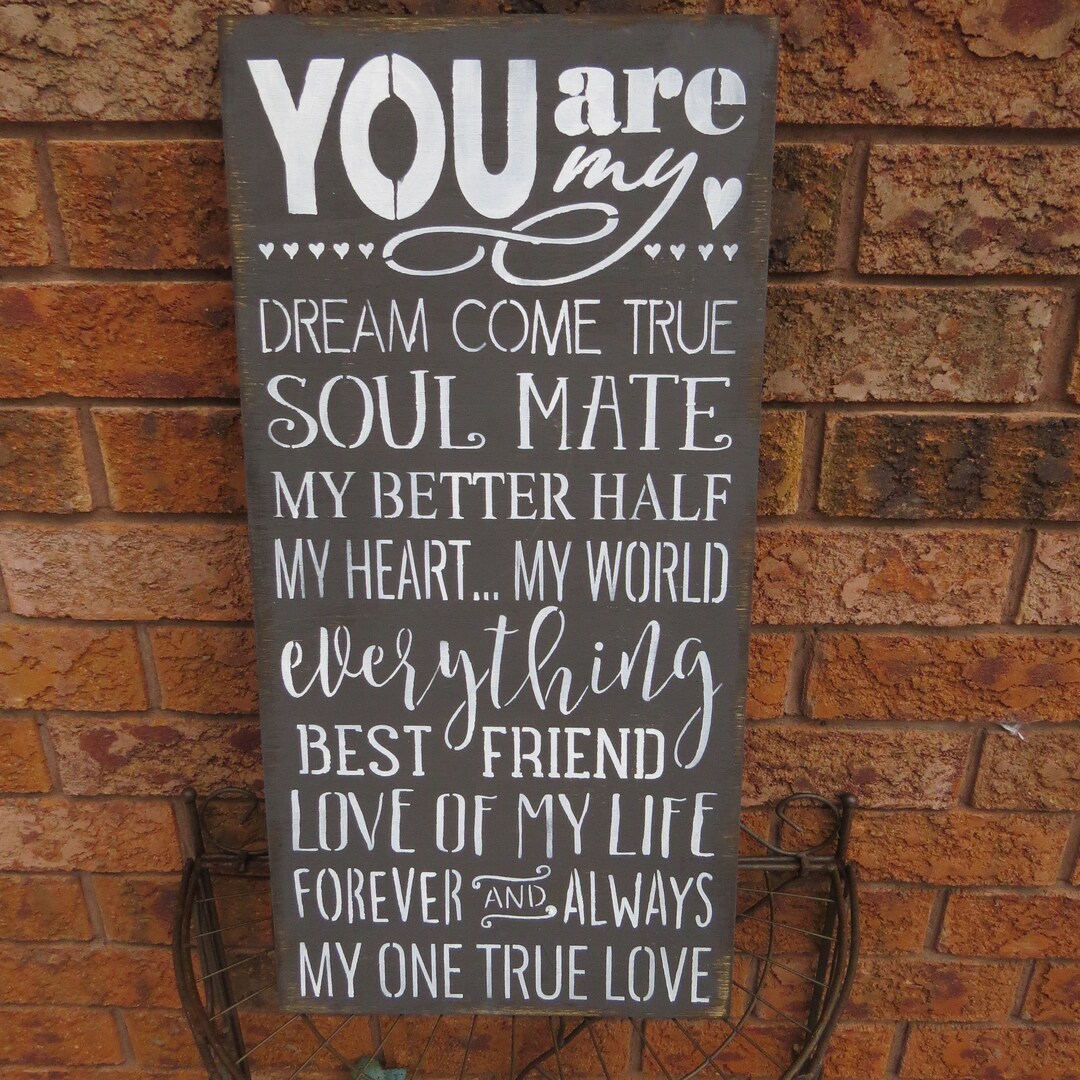 YOU are
my
DREAM COME TRUE
SOUL MATE
MY BETTER HALF
MY HEART... MY WORLD
everything
BEST FRIEND
LOVE OF MY LIFE
FOREVER AND ALWAYS
MY ONE TRUE LOVE